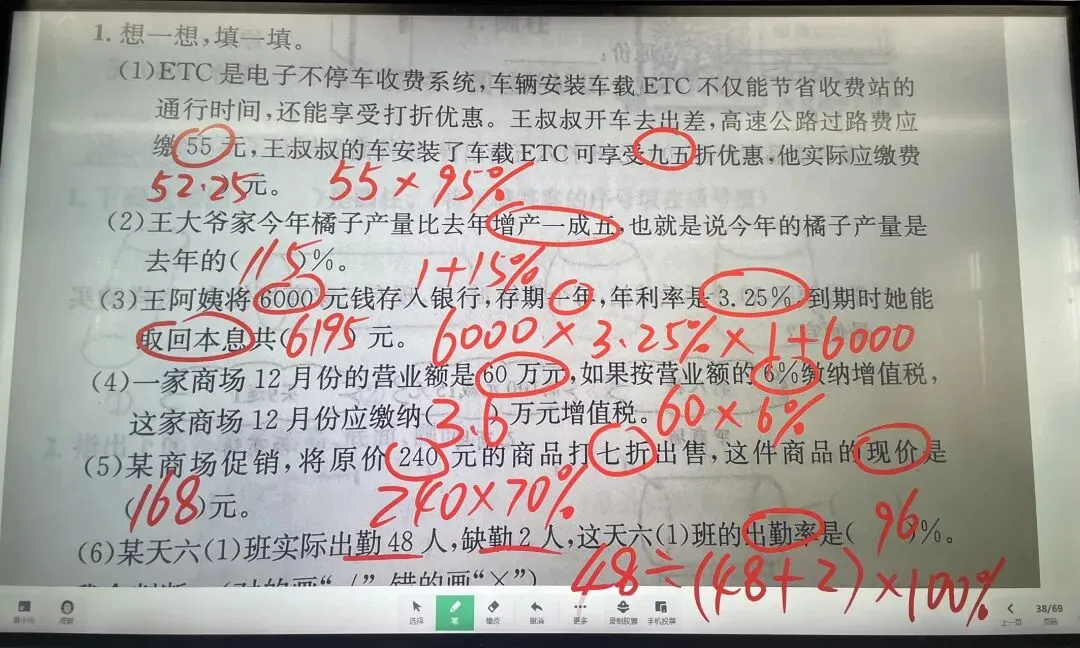 1. 想一想,填一填。
(1)ETC 是电子不停车收费系统,车辆安装车载 ETC 不仅能节省收费站的
通行时间,还能享受打折优惠。王叔叔开车去出差,高速公路过路费应
缴 55 元,王叔叔的车安装了车载 ETC 可享受九五折优惠,他实际应缴费
52.25元。 55×95%
(2)王大爷家今年橘子产量比去年增产一成五,也就是说今年的橘子产量是
去年的(115)%。 1+15%
(3)王阿姨将 6000 元钱存入银行,存期一年,年利率是 3.25%,到期时她能
取回本息共(6195)元。 6000×3.25%×1+6000
(4)一家商场 12 月份的营业额是 60 万元,如果按营业额的 6%缴纳增值税,
这家商场 12 月份应缴纳(3.6)万元增值税。 60×6%
(5)某商场促销,将原价 240 元的商品打七折出售,这件商品的现价是
(168)元。 240×70%
(6)某天六(1)班实际出勤 48 人,缺勤 2 人,这天六(1)班的出勤率是( 96 )%。
(对的画“√”,错的画“×”) 48÷(48+2)×100%
选择 笔 橡皮 撤消 更多 录制胶囊 手机投屏 上一页 38/69 页码